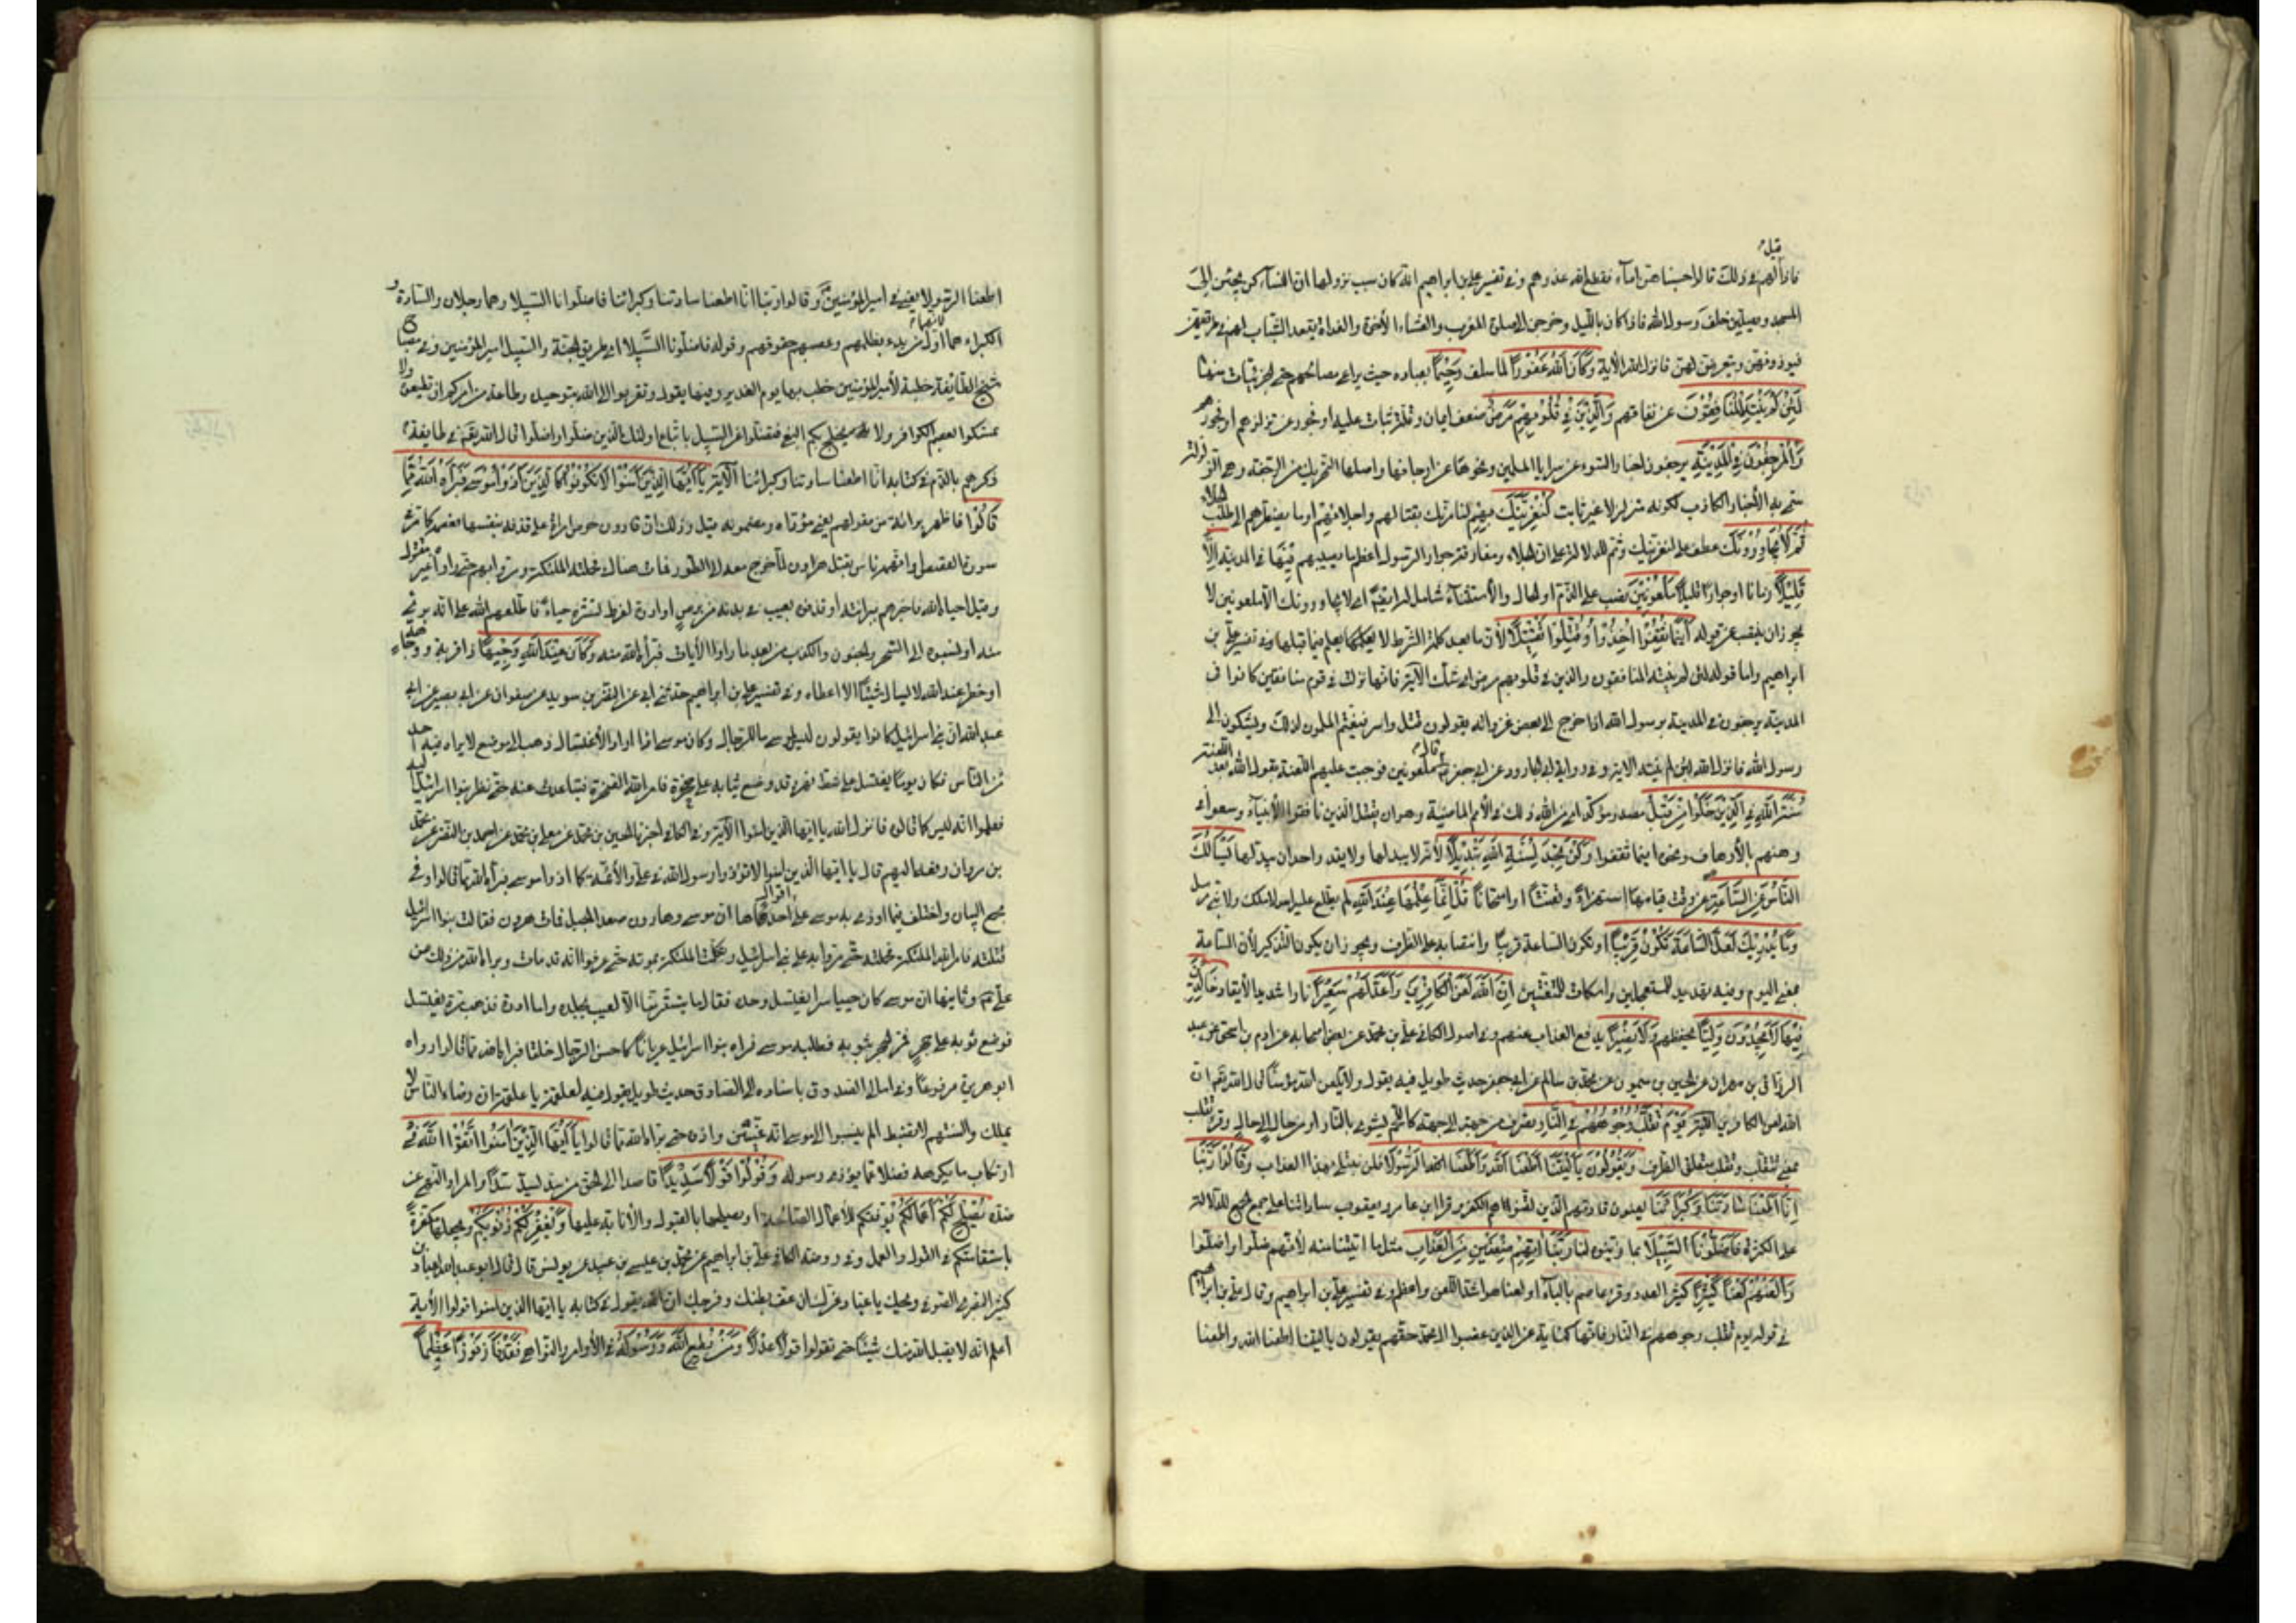 قيل
فاذا لهم في ذلك قالوا حسبناهن اماء فقطع الله عذرهم وفي تفسير علي بن ابراهيم انه كان سبب نزولها ان النساء كن يجئن الى
المسجد ويصلين خلف رسول الله فاذا كان بالليل وخرجن الى صلوة المغرب والعشاء الآخرة والغداة يقعد الشباب لهن في طريقهن
فيؤذونهن ويتعرضون لهن فانزل الله الآية وَكَانَ اللهُ غَفُورًا لما سلف رَحِيْمًا بعباده حيث يراعي مصالحهم حتى الجزئيات منها
لَئِنْ لَمْ يَنْتَهِ الْمُنَافِقُوْنَ عن نفاقهم وَالَّذِيْنَ فِي قُلُوْبِهِمْ مَرَضٌ ضعف ايمان وقلة ثبات عليه او فجور عن تزلزلهم او فجورهم
وَالْمُرْجِفُوْنَ فِي الْمَدِيْنَةِ يرجفون اخبار السوء عن سرايا المسلمين ونحوها عن ارجافها واصلها التحريك من الرجفة وهي الزلزلة
سمي به الأخبار الكاذب لكونه متزلزلا غير ثابت لَنُغْرِيَنَّكَ بِهِمْ لنأمرنك بقتالهم واجلائهم او ما يضطرهم الى طلب الجلاء
ثُمَّ لَا يُجَاوِرُوْنَكَ عطف على لنغرينك وثم للدلالة على ان الجلاء ومفارقة جوار الرسول اعظم ما يصيبهم فِيْهَا في المدينة اِلَّا
قَلِيْلًا زمانا او جوارا قليلا مَلْعُوْنِيْنَ نصب على الذم او الحال والأستثناء شامل له ايضا اي لا يجاورونك الا ملعونين لا
يجوز ان ينتصب عن قوله أَيْنَمَا ثُقِفُوْا أُخِذُوْا وَقُتِّلُوْا تَقْتِيْلًا لأن ما بعد كلمة الشرط لا يعمل فيما قبلها وفي تفسير علي بن
ابراهيم واما قوله لئن لم ينته المنافقون والذين في قلوبهم مرض اي شك الآية فانها نزلت في قوم منافقين كانوا في
المدينة يرجفون في المدينة برسول الله اذا خرج الى بعض غزواته يقولون قتل واسر فيغتم المسلمون لذلك ويشكون الى
رسول الله فانزل الله لئن لم ينته الاية وفي رواية ابي الجارود عن ابي جعفر قال ملعونين فوجبت عليهم اللعنة يقول الله بعد اللعنة
سُنَّةَ اللهِ فِي الَّذِيْنَ خَلَوْا مِنْ قَبْلُ مصدر مؤكد اي سن الله ذلك في الأمم الماضية وهو ان يقتل الذين نافقوا الأنبياء وسعوا في
وهنهم بالأرجاف ونحوه اينما ثقفوا وَلَنْ تَجِدَ لِسُنَّةِ اللهِ تَبْدِيْلًا لأنه لا يبدلها ولا يقدر احد ان يبدلها يَسْأَلُكَ
النَّاسُ عَنِ السَّاعَةِ عن وقت قيامها استهزاء وتعنتا او امتحانا قُلْ إِنَّمَا عِلْمُهَا عِنْدَ اللهِ لم يطلع عليه احد لا ملك ولا نبي مرسل
وَمَا يُدْرِيْكَ لَعَلَّ السَّاعَةَ تَكُوْنُ قَرِيْبًا او تكون الساعة قريبا وانتصابه على الظرف ويجوز ان يكون التذكير لأن الساعة
بمعنى اليوم وفيه تهديد للمستعجلين واسكات للمتعنتين اِنَّ اللهَ لَعَنَ الْكَافِرِيْنَ وَاَعَدَّ لَهُمْ سَعِيْرًا نارا شديد الأيقاد خَالِدِيْنَ
فِيْهَا لَا يَجِدُوْنَ وَلِيًّا يحفظهم وَلَا نَصِيْرًا يدفع العذاب عنهم وفي اصول الكافي علي بن محمد عن بعض اصحابه عن ادم بن اسحق عن عبد
الرزاق بن مهران عن الحسين بن ميمون عن محمد بن سالم عن ابي جعفر حديث طويل فيه يقول ولا يلعن الله مؤمنا قال الله تعالى ان
الله لعن الكافرين الآية يَوْمَ تُقَلَّبُ وُجُوْهُهُمْ فِي النَّارِ تصرف من جهة الى جهة كاللحم يشوى بالنار او من حال الى حال وقرئ تقلب
بمعنى تتقلب وتقلب ومتعلق الظرف يَقُوْلُوْنَ يَا لَيْتَنَا أَطَعْنَا اللهَ وَأَطَعْنَا الرَّسُوْلَا فلن نبتلى بهذا العذاب وَقَالُوْا رَبَّنَا
اِنَّا اَطَعْنَا سَادَتَنَا وَكُبَرَاءَنَا يعنون قادتهم الذين لقنوهم الكفر وقرأ ابن عامر ويعقوب ساداتنا على جمع الجمع للدلالة
على الكثرة فَاَضَلُّوْنَا السَّبِيْلَا بما زينوا لنا رَبَّنَا اٰتِهِمْ ضِعْفَيْنِ مِنَ الْعَذَابِ مثلي ما اتيتنا منه لأنهم ضلوا واضلوا
وَالْعَنْهُمْ لَعْنًا كَبِيْرًا كثير العدد وقرء عاصم بالباء اي لعنا هو اشد اللعن واعظم وفي تفسير علي بن ابراهيم وقال علي بن ابراهيم
في قوله يوم تقلب وجوههم في النار فانها كناية عن الذين غصبوا ال محمد حقهم يقولون يا ليتنا اطعنا الله واطعنا
اطعنا الرسولا يعني في امير المؤمنين وقالوا ربنا انا اطعنا سادتنا وكبرائنا فاضلونا السبيلا وهما رجلان والسادة و
الكبراء هما اول من بدء بظلمهم وغصبهم حقوقهم وقوله فاضلونا السبيلا اي طريق الجنة والسبيل امير المؤمنين وفي مصباح
شيخ الطائفة خطبة لأمير المؤمنين خطب بها يوم الغدير وفيها يقول وتقربوا الى الله بتوحيده وطاعة من امركم ان تطيعوه ولا
تمسكوا بعصم الكوافر ولا يجنح بكم الغي فتضلوا عن السبيل باتباع اولئك الذين ضلوا واضلوا قال الله تعالى في طايفة
ذكرهم بالذم في كتابه انا اطعنا سادتنا وكبرائنا الآية يَا اَيُّهَا الَّذِيْنَ اٰمَنُوْا لَا تَكُوْنُوْا كَالَّذِيْنَ اٰذَوْا مُوْسَى فَبَرَّأَهُ اللهُ مِمَّا
قَالُوْا فاظهر برائته من مقولهم يعني مؤداه ومضمونه قيل وذلك ان قارون حرض امرأة على قذفه بنفسها فعصمه كما مر في
سورة القصص او اتهمه ناس بقتل هرون لما خرج معه الى الطور فمات هناك فحملته الملئكة ومرت بهم حتى راوه غير مقتول
وقيل احياه الله فاخبرهم ببرائته او قذفوه بعيب في بدنه من برص او ادرة لفرط تستره حياء فاطلعهم الله على انه بريء
منه او لنسبوه الى السحر والجنون والكذب من بعد ما راوا الآيات فبرأه الله منه وَكَانَ عِنْدَ اللهِ وَجِيْهًا ذا قربة ووجاهة
او خطر عند الله لا يسال شيئا الا اعطاه وفي تفسير علي بن ابراهيم حدثني ابي عن النضر بن سويد عن صفوان عن ابي بصير عن ابي
عبد الله ان بني اسرائيل كانوا يقولون ليس لموسى ما للرجال وكان موسى اذا اراد الأغتسال ذهب الى موضع لا يراه فيه احد
من الناس فكان يوما يغتسل على شط نهر وقد وضع ثيابه على صخرة فامر الله الصخرة فتباعدت عنه حتى نظر بنوا اسرائيل اليه
فعلموا انه ليس كما قالوا فانزل الله يا ايها الذين امنوا الآية وفي الكافي اخبرنا الحسين بن محمد عن معلى بن محمد عن احمد بن النضر عن محمد
بن مروان رفعه اليهم قال يا ايها الذين امنوا لا تؤذوا رسول الله في علي والأئمة كما اذوا موسى فبرأه الله مما قالوا وفي
مجمع البيان واختلف فيما اوذي به موسى على اقوال احدها ان موسى وهارون صعدا الجبل فمات هرون فقالت بنوا اسرائيل
قتلته فامر الله الملئكة فحملته حتى مروا به على بني اسرائيل وتكلمت الملئكة بموته حتى عرفوا انه قد مات وبراه الله من ذلك عن
علي وثانيها ان موسى كان حييا ستيرا يغتسل وحده فقالوا ما يستتر منا الا لعيب بجلده واما ادرة فذهب مرة يغتسل
فوضع ثوبه على حجر فمر الحجر بثوبه فطلبه موسى فراه بنوا اسرائيل عريانا كاحسن الرجال خلقا فبراه الله مما قالوا رواه
ابو هريرة مرفوعا وفي امالي الصدوق باسناده الى الصادق حديث طويل يقول فيه لعلقمة يا علقمة ان رضاء الناس لا
يملك والسنتهم لا تضبط الم ينسبوا الى موسى انه عنين واذوه حتى براه الله مما قالوا يَا اَيُّهَا الَّذِيْنَ اٰمَنُوْا اتَّقُوْا اللهَ في
ارتكاب ما يكرهه فضلا عما يؤذي رسوله وَقُوْلُوْا قَوْلًا سَدِيْدًا قاصدا الى الحق من سد يسد سدادا والمراد النهي عن
ضده يُصْلِحْ لَكُمْ اَعْمَالَكُمْ يوفقكم للأعمال الصالحة او يصلحها بالقبول والأثابة عليها وَيَغْفِرْ لَكُمْ ذُنُوْبَكُمْ ويجعلها مكفرة
باستقامتكم في القول والعمل وفي روضة الكافي علي بن ابراهيم عن محمد بن عيسى بن عبيد عن يونس قال قال ابو عبد الله لعباد بن
كثير البصري الصوفي ويحك يا عباد غرك ان عف بطنك وفرجك ان الله يقول في كتابه يا ايها الذين امنوا قولوا الآية
اعلم انه لا يقبل الله منك شيئا حتى تقولوا قولا عدلا وَمَنْ يُطِعِ اللهَ وَرَسُوْلَهُ في الأوامر والنواهي فَقَدْ فَازَ فَوْزًا عَظِيْمًا